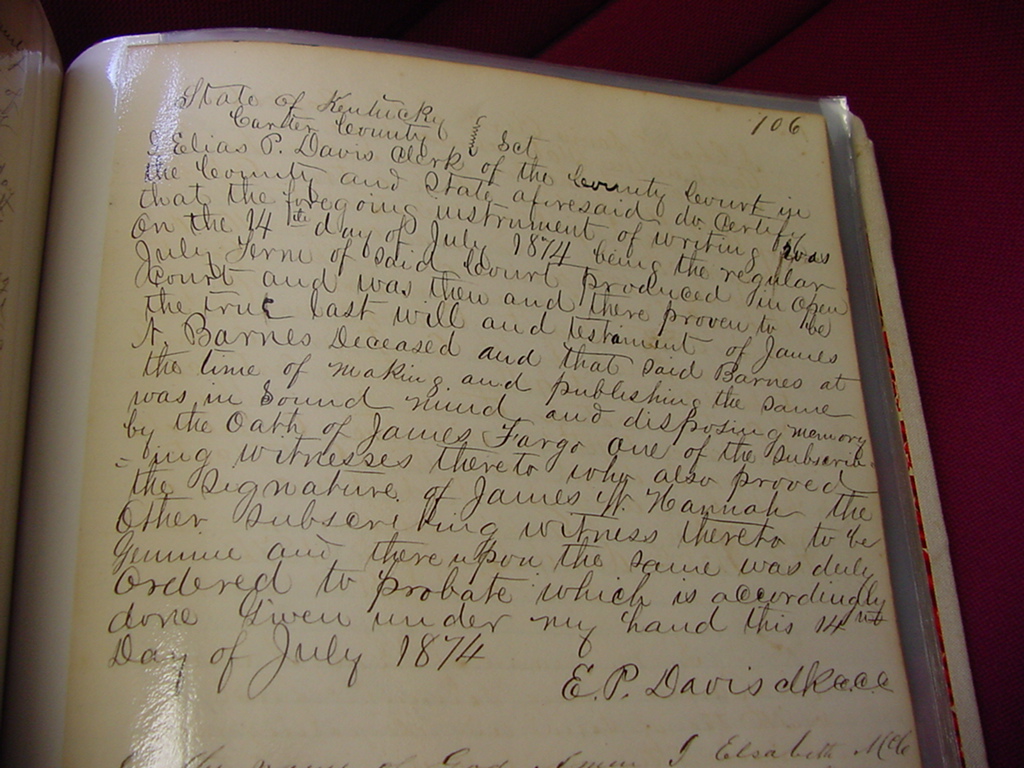 106
State of Kentucky
Carter County } Sct
I Elias P. Davis Clerk of the County Court in
the County and State aforesaid do Certify
that the foregoing instrument of writing was
On the 14th day of July 1874 being the regular
July Term of Said Court produced in open
Court and was then and there proven to be
the true last will and testament of James
A. Barnes Deceased and that said Barnes at
the time of making and publishing the same
was in Sound mind and disposing memory
by the Oath of James Fargo one of the Subscrib
=ing witnesses thereto who also proved
the signature of James W. Hannah the
Other Subscribing witness thereto to be
Genuine and there upon the same was duly
Ordered to probate which is accordingly
done Given under my hand this 14th
Day of July 1874
E. P. Davis clk c.c.c
name of God Amen I Elsabeth